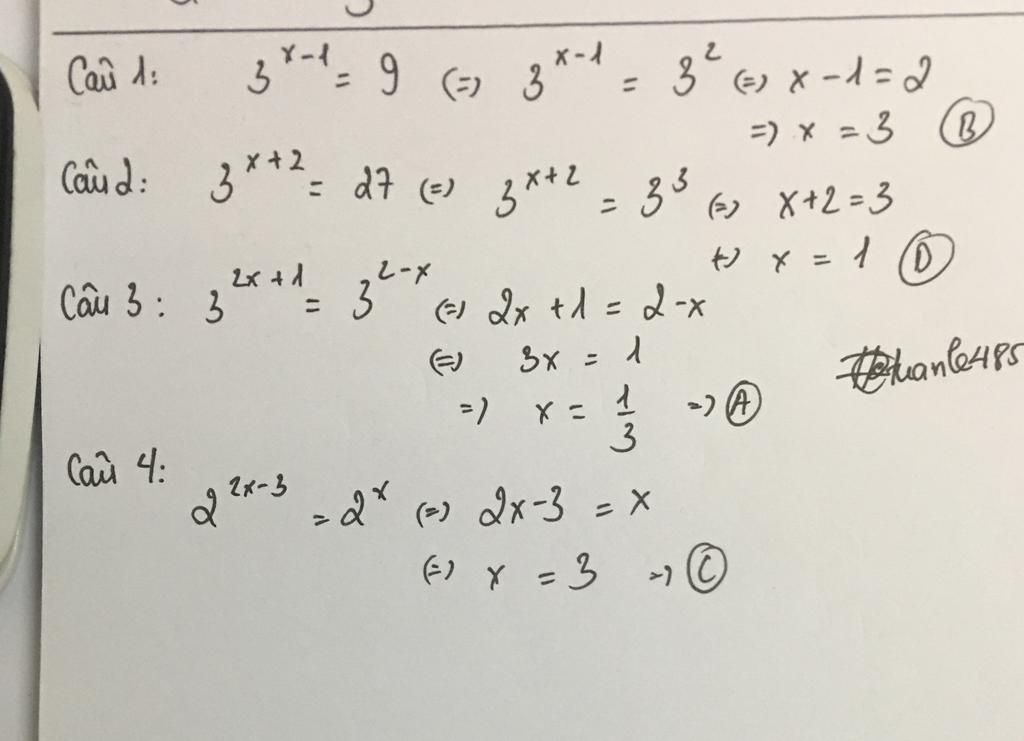 Câu 1: 3^{x-1} = 9 (=) 3^{x-1} = 3^2 (=) x - 1 = 2
=) x = 3 (B)
Câu 2: 3^{x+2} = 27 (=) 3^{x+2} = 3^3 (=) x+2 = 3
(=) x = 1 (D)
Câu 3: 3^{2x+1} = 3^{2-x} (=) 2x + 1 = 2 - x
(=) 3x = 1
=) x = \frac{1}{3} =) (A)
Câu 4:
2^{2x-3} = 2^x (=) 2x - 3 = x
(=) x = 3 =) (C)